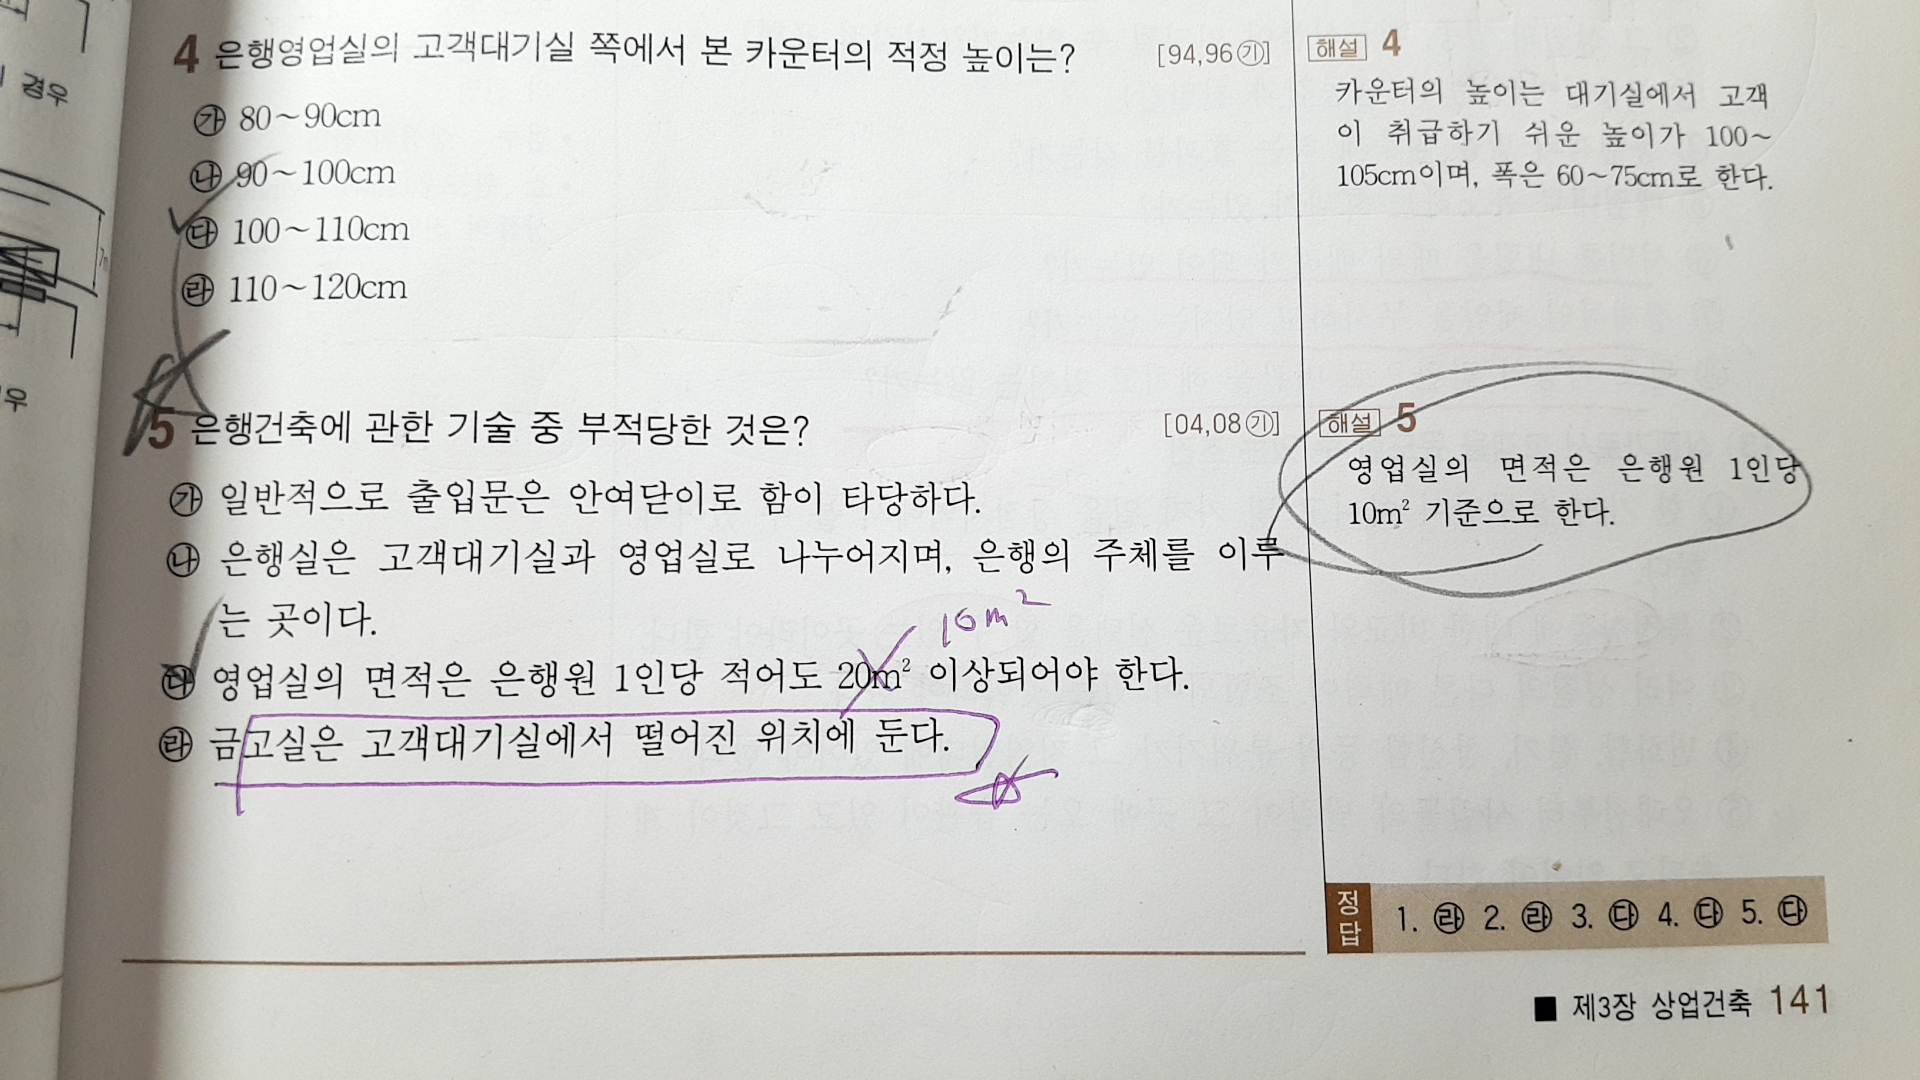 경우
우
7m
4 은행영업실의 고객대기실 쪽에서 본 카운터의 적정 높이는? [94,96㉮기]
㉮ 80~90cm
㉯ 90~100cm
㉰ 100~110cm
㉱ 110~120cm
5 은행건축에 관한 기술 중 부적당한 것은? [04,08기]
㉮ 일반적으로 출입문은 안여닫이로 함이 타당하다.
㉯ 은행실은 고객대기실과 영업실로 나누어지며, 은행의 주체를 이루
는 곳이다.
10m²
㉰ 영업실의 면적은 은행원 1인당 적어도 20m² 이상되어야 한다.
㉱ 금고실은 고객대기실에서 떨어진 위치에 둔다.
해설 4
카운터의 높이는 대기실에서 고객
이 취급하기 쉬운 높이가 100~
105cm이며, 폭은 60~75cm로 한다.
해설 5
영업실의 면적은 은행원 1인당
10m² 기준으로 한다.
정답 1. ㉱ 2. ㉱ 3. ㉰ 4. ㉰ 5. ㉰
■ 제3장 상업건축 141